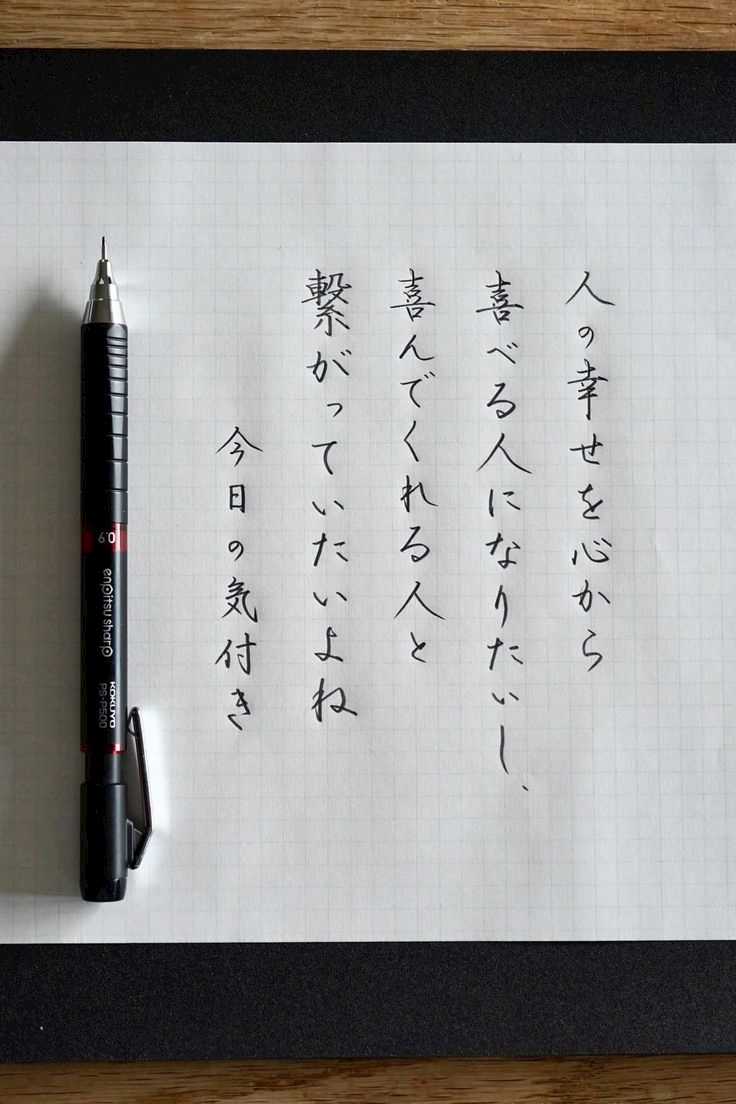 人の幸せを心から
喜べる人になりたいし、
喜んでくれる人と
繋がっていたいよね
今日の気付き
0.9
enpitsu sharp
KOKUYO
PS-P500